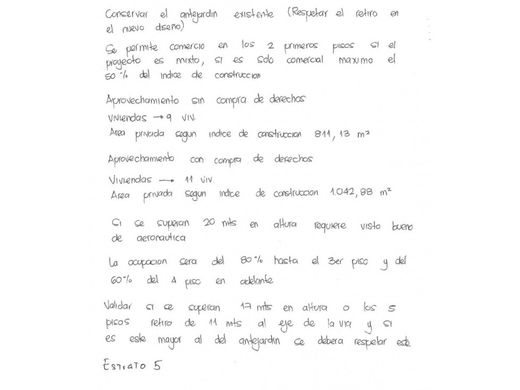 Conservar el antejardin existente (Respetar el retiro en
el nuevo diseño)
Se permite comercio en los 2 primeros pisos si el
proyecto es mixto, si es solo comercial maximo el
50% del indice de construccion
Aprovechamiento sin compra de derechos
Viviendas → 9 viv.
Area privada segun indice de construccion 811,13 m²
Aprovechamiento con compra de derechos
Viviendas → 11 viv.
Area privada segun indice de construccion 1.042,88 m²
Si se superan 20 mts en altura requiere visto bueno
de aeronautica
La ocupacion sera del 80% hasta el 3er piso y del
60% del 4 piso en adelante
Validar si se superan 17 mts en altura o los 5
pisos retiro de 11 mts al eje de la via y si
es este mayor al del antejardin se debera respetar este.
Estrato 5